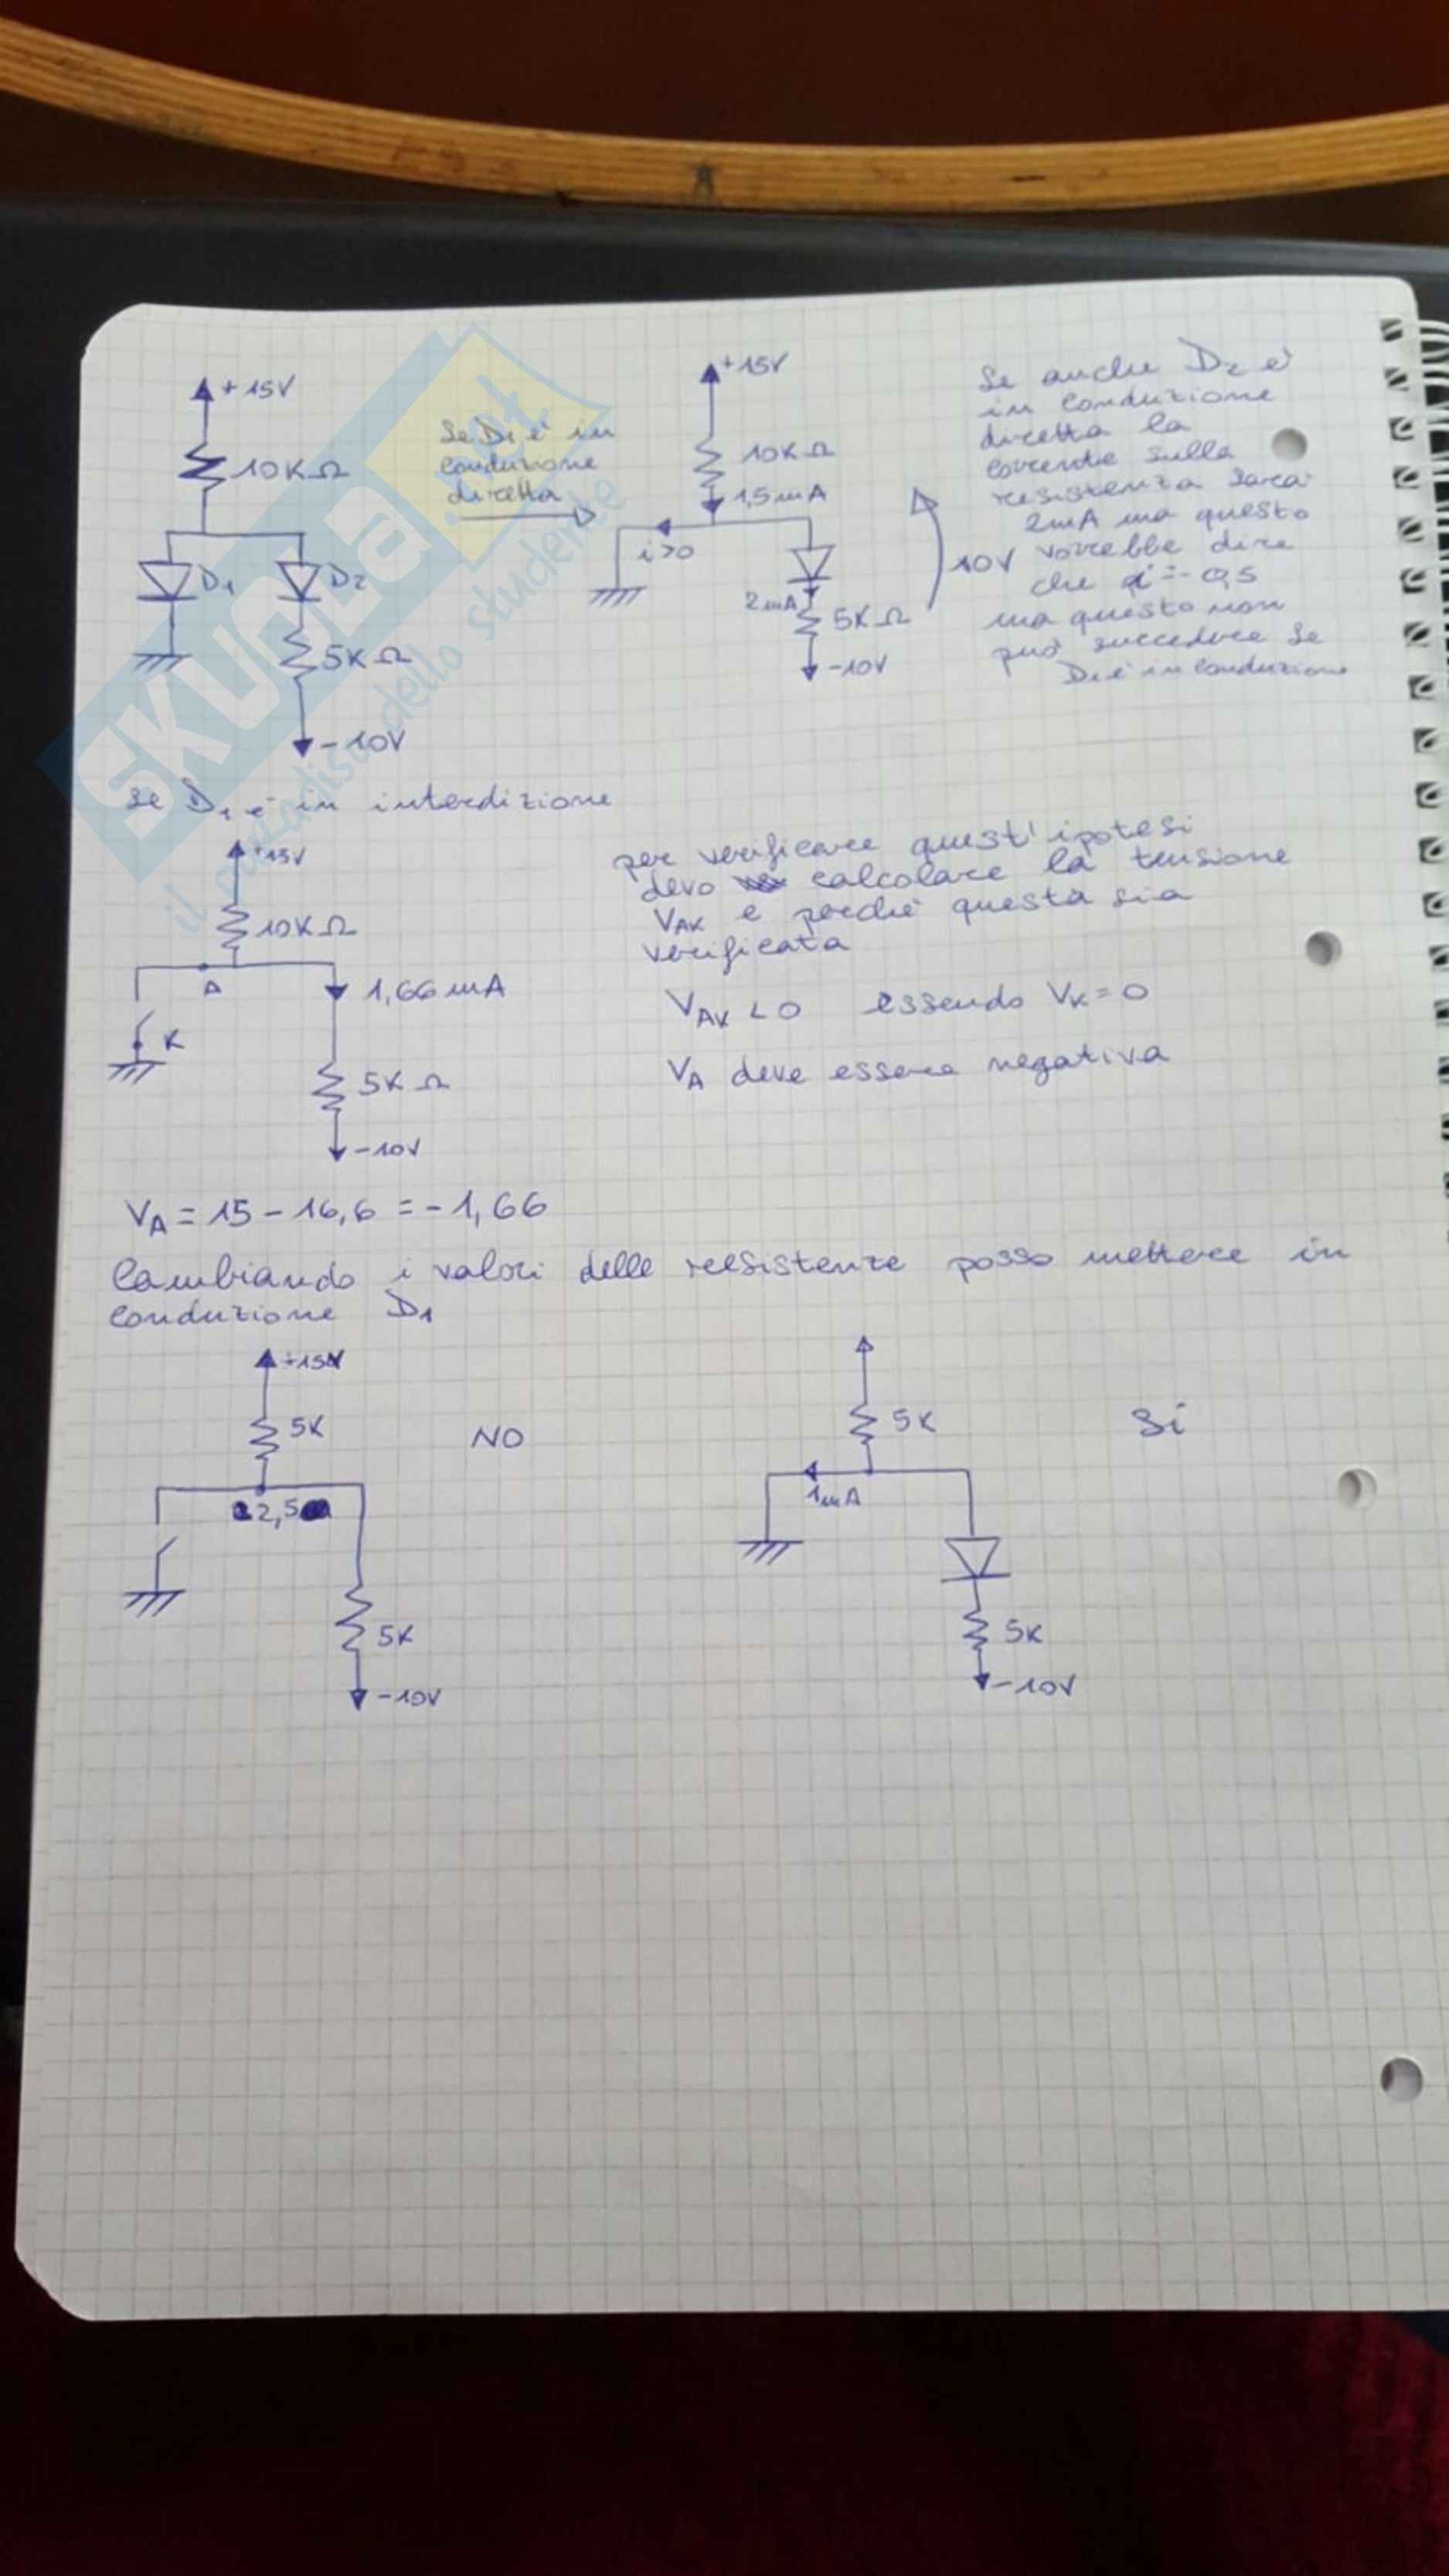 +15V
10KΩ
D1
D2
5KΩ
-10V
Se D1 è in
conduzione
diretta
+15V
10KΩ
1,5mA
i>0
2mA
5KΩ
-10V
10V
Se anche D2 è
in conduzione
diretta la
corrente sulla
resistenza sarà
2mA ma questo
vorrebbe dire
che i=-0,5
ma questo non
può succedere se
D1 è in conduzione
SKUOLA.net
il paradiso dello studente
se D1 è in interdizione
+15V
10KΩ
A
1,66mA
K
5KΩ
-10V
per verificare quest'ipotesi
devo calcolare la tensione
VAK e perchè questa sia
verificata
VAK < 0 essendo VK=0
VA deve essere negativa
VA = 15 - 16,6 = -1,66
Cambiando i valori delle resistenze posso mettere in
conduzione D1
+15V
5K
NO
2,5
5K
-10V
5K
Si
1mA
5K
-10V